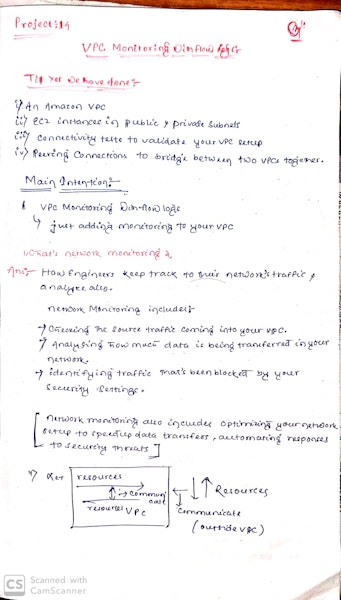 Project:14
VPC Monitoring with flow logs
Till Yet We have done:
i) An Amazon VPC
ii) EC2 instances in public & private subnets
iii) Connectivity tests to validate your VPC setup
iv) Peering Connections to bridge between two VPCs together.
Main Intention:
VPC Monitoring with-flow logs
↳ just adding monitoring to your VPC
What's network monitoring?
Ans: How Engineers keep track to their network's traffic &
analyze also.
network Monitoring includes:
→ Checking the source traffic coming into your VPC.
→ Analysing how much data is being transferred in your
network.
→ identifying traffic that's been blocked by your
security settings.
[Network monitoring also includes optimizing your network
setup to speedup data transfers, automating responses
to security threats]
resources
communi
cate
resources VPC
Resources
communicate
(outside VPC)
CS Scanned with
CamScanner